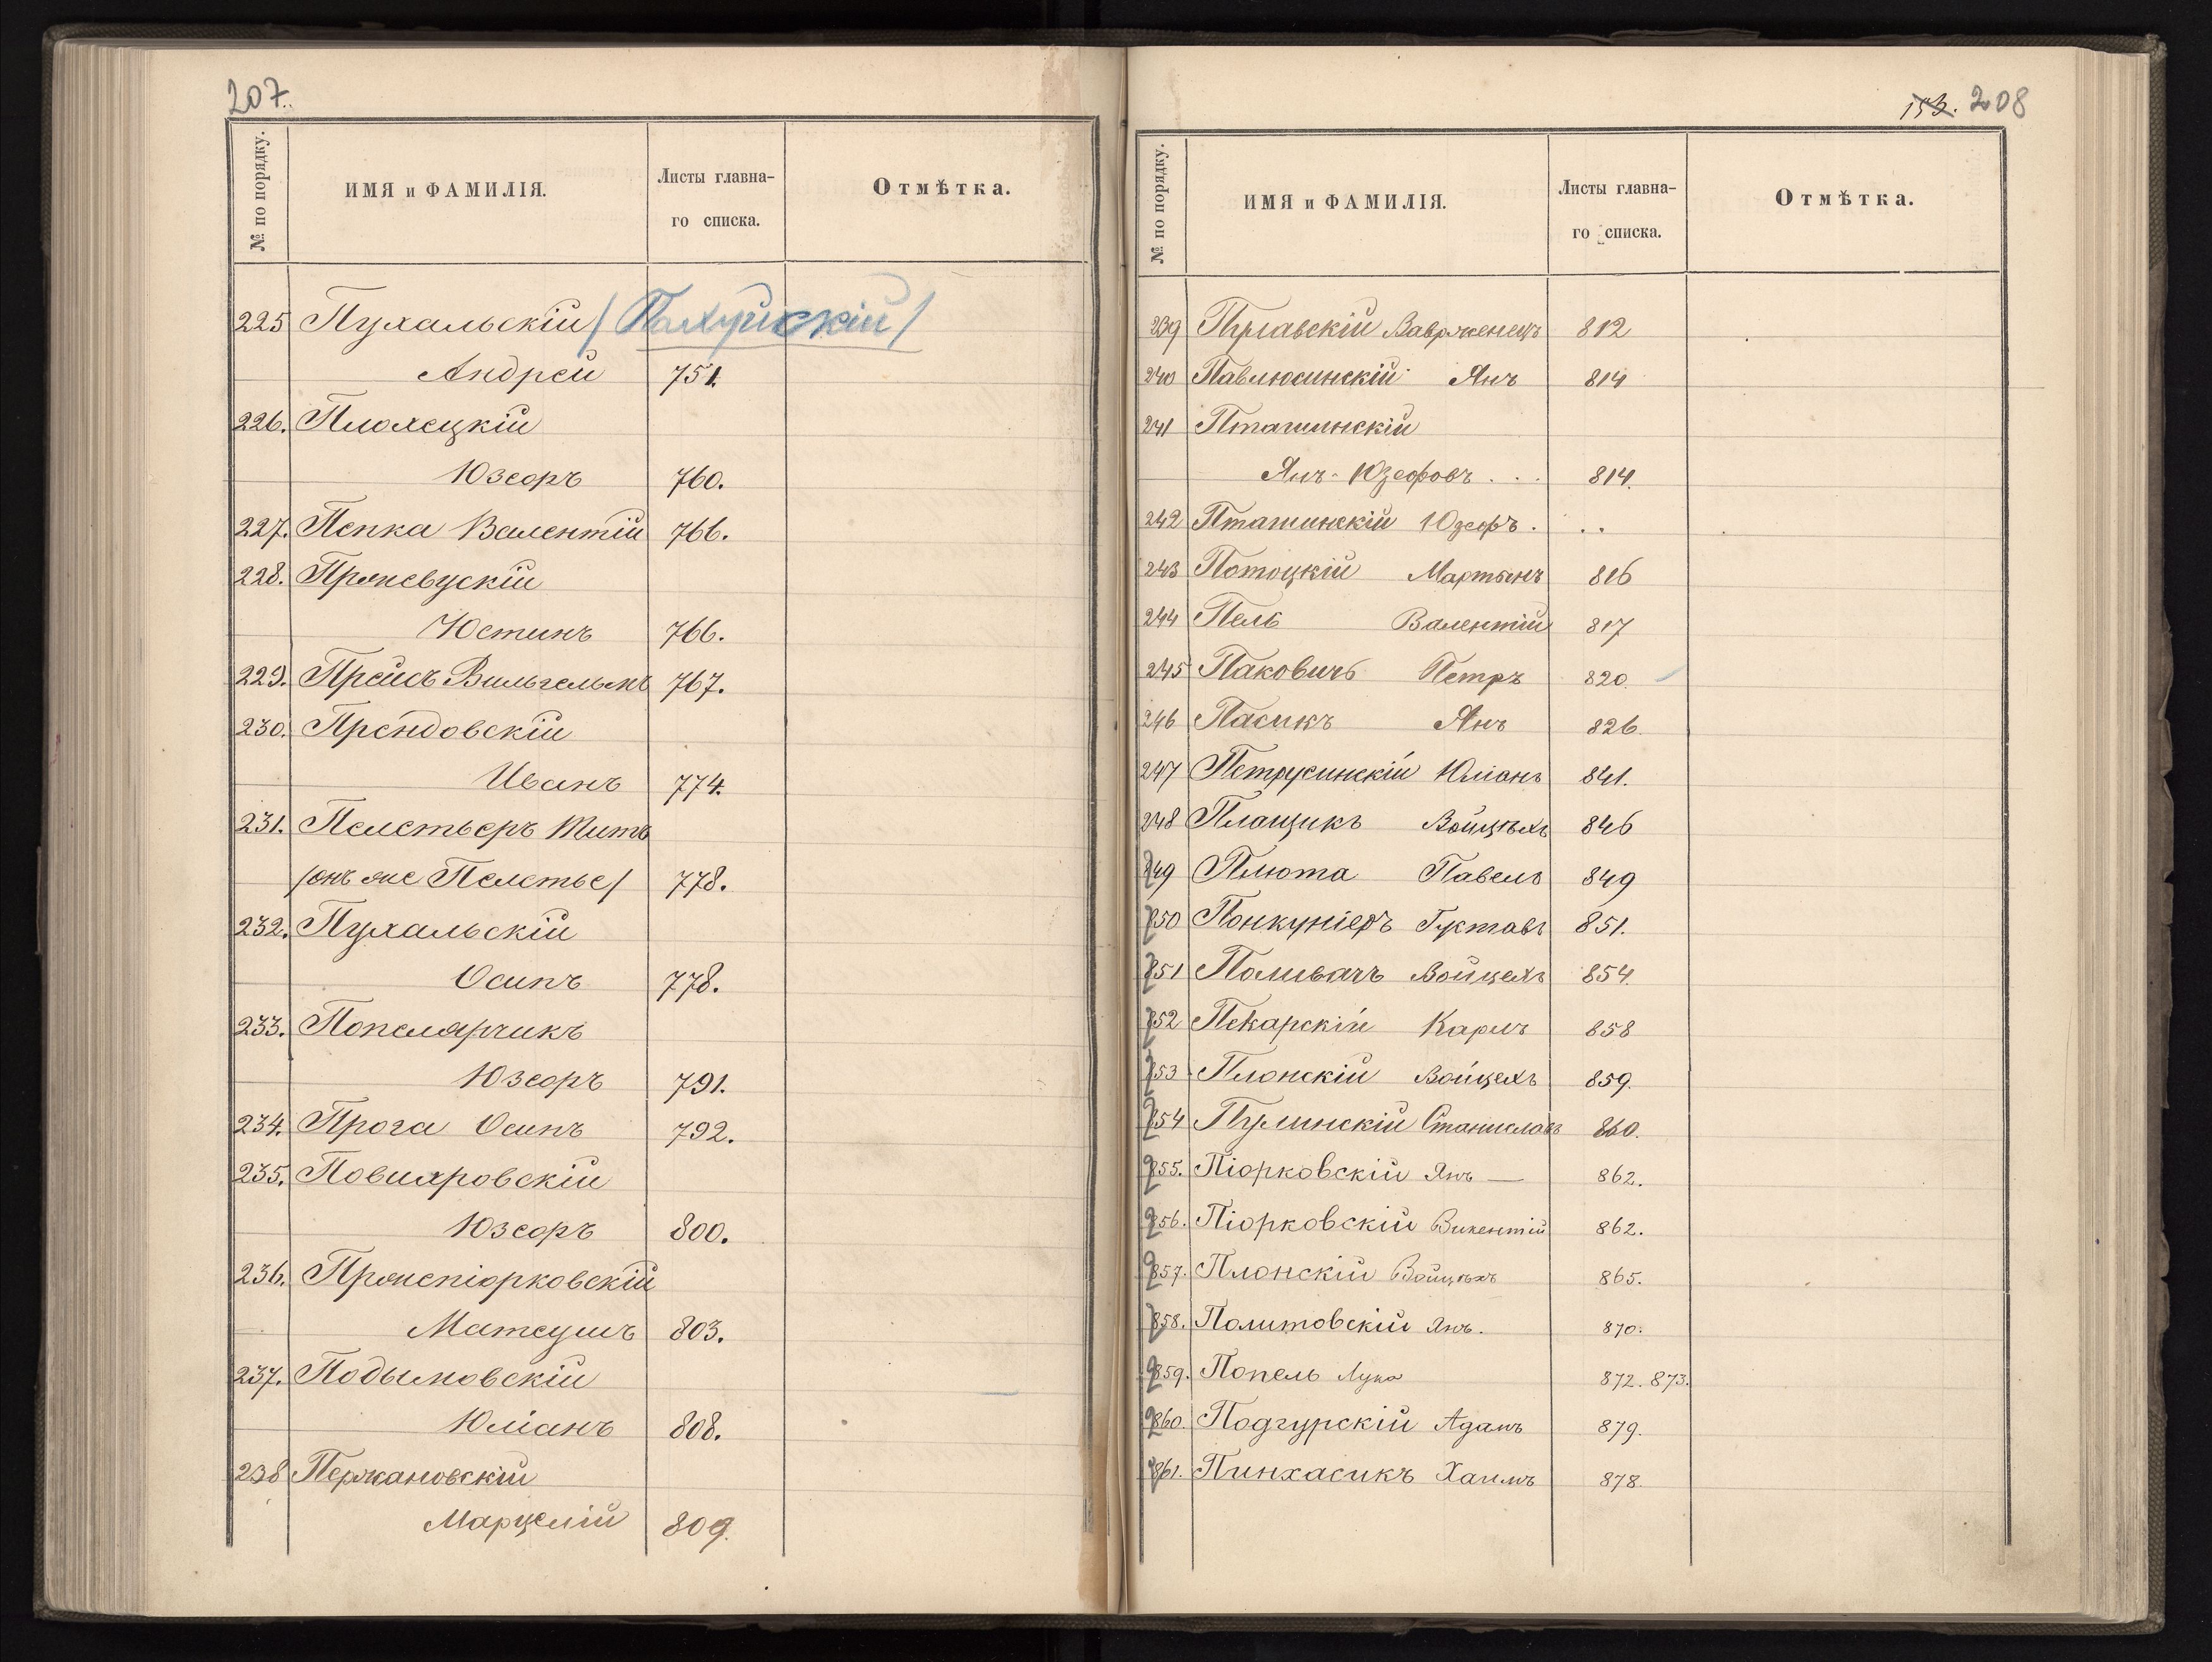 207.
№ по порядку.
ИМЯ и ФАМИЛІЯ.
Листы главна-
го списка.
Отмѣтка.
225 Пухальскій /Пахуйскій/
Андрей 751.
226. Плохецкій
Юзефъ 760.
227. Пепка Валентій 766.
228. Пржевускій
Юстинъ 766.
229. Прейсъ Вильгельмъ 767.
230. Прендовскій
Иванъ 774.
231. Пелетьеръ Титъ
/онъ же Пелетье/ 778.
232. Пухальскій
Осипъ 778.
233. Попелярчикъ
Юзефъ 791.
234. Прога Осипъ 792.
235. Повияровскій
Юзефъ 800.
236. Пржепіорковскій
Матеушъ 803.
237. Подымовскій
Юліанъ 808.
238 Пержановскій
Марцелій 809.
153. 208
№ по порядку.
ИМЯ и ФАМИЛІЯ.
Листы главна-
го списка.
Отмѣтка.
239 Ваврженецъ 812
240 Павлюсинскій Янъ 814
241 Пташинскій
Янъ-Юзефовъ . . . 814.
242 Пташинскій Юзефъ . . .
243 Потоцкій Мартынъ 816
244 Пель Валентій 817
245 Паковичъ Петръ 820.
246 Пасикъ Янъ 826.
247 Петрусинскій Юліанъ 841.
248 Плащикъ Войцѣхъ 846
249 Плюта Павелъ 849
250 Понкуніеръ Густавъ 851.
251 Поливачъ Войцехъ 854.
252 Пекарскій Карлъ 858
253 Плонскій Войцехъ 859.
254 Пулинскій Станиславъ 860.
255. Піорковскій Янъ — 862.
256. Піорковскій Викентій 862.
257. Плонскій Войцѣхъ 865.
258. Политовскій Янъ. 870.
259. Попель Лука 872. 873.
260. Подгурскій Адамъ 879.
261. Пинхасикъ Хаимъ 878.